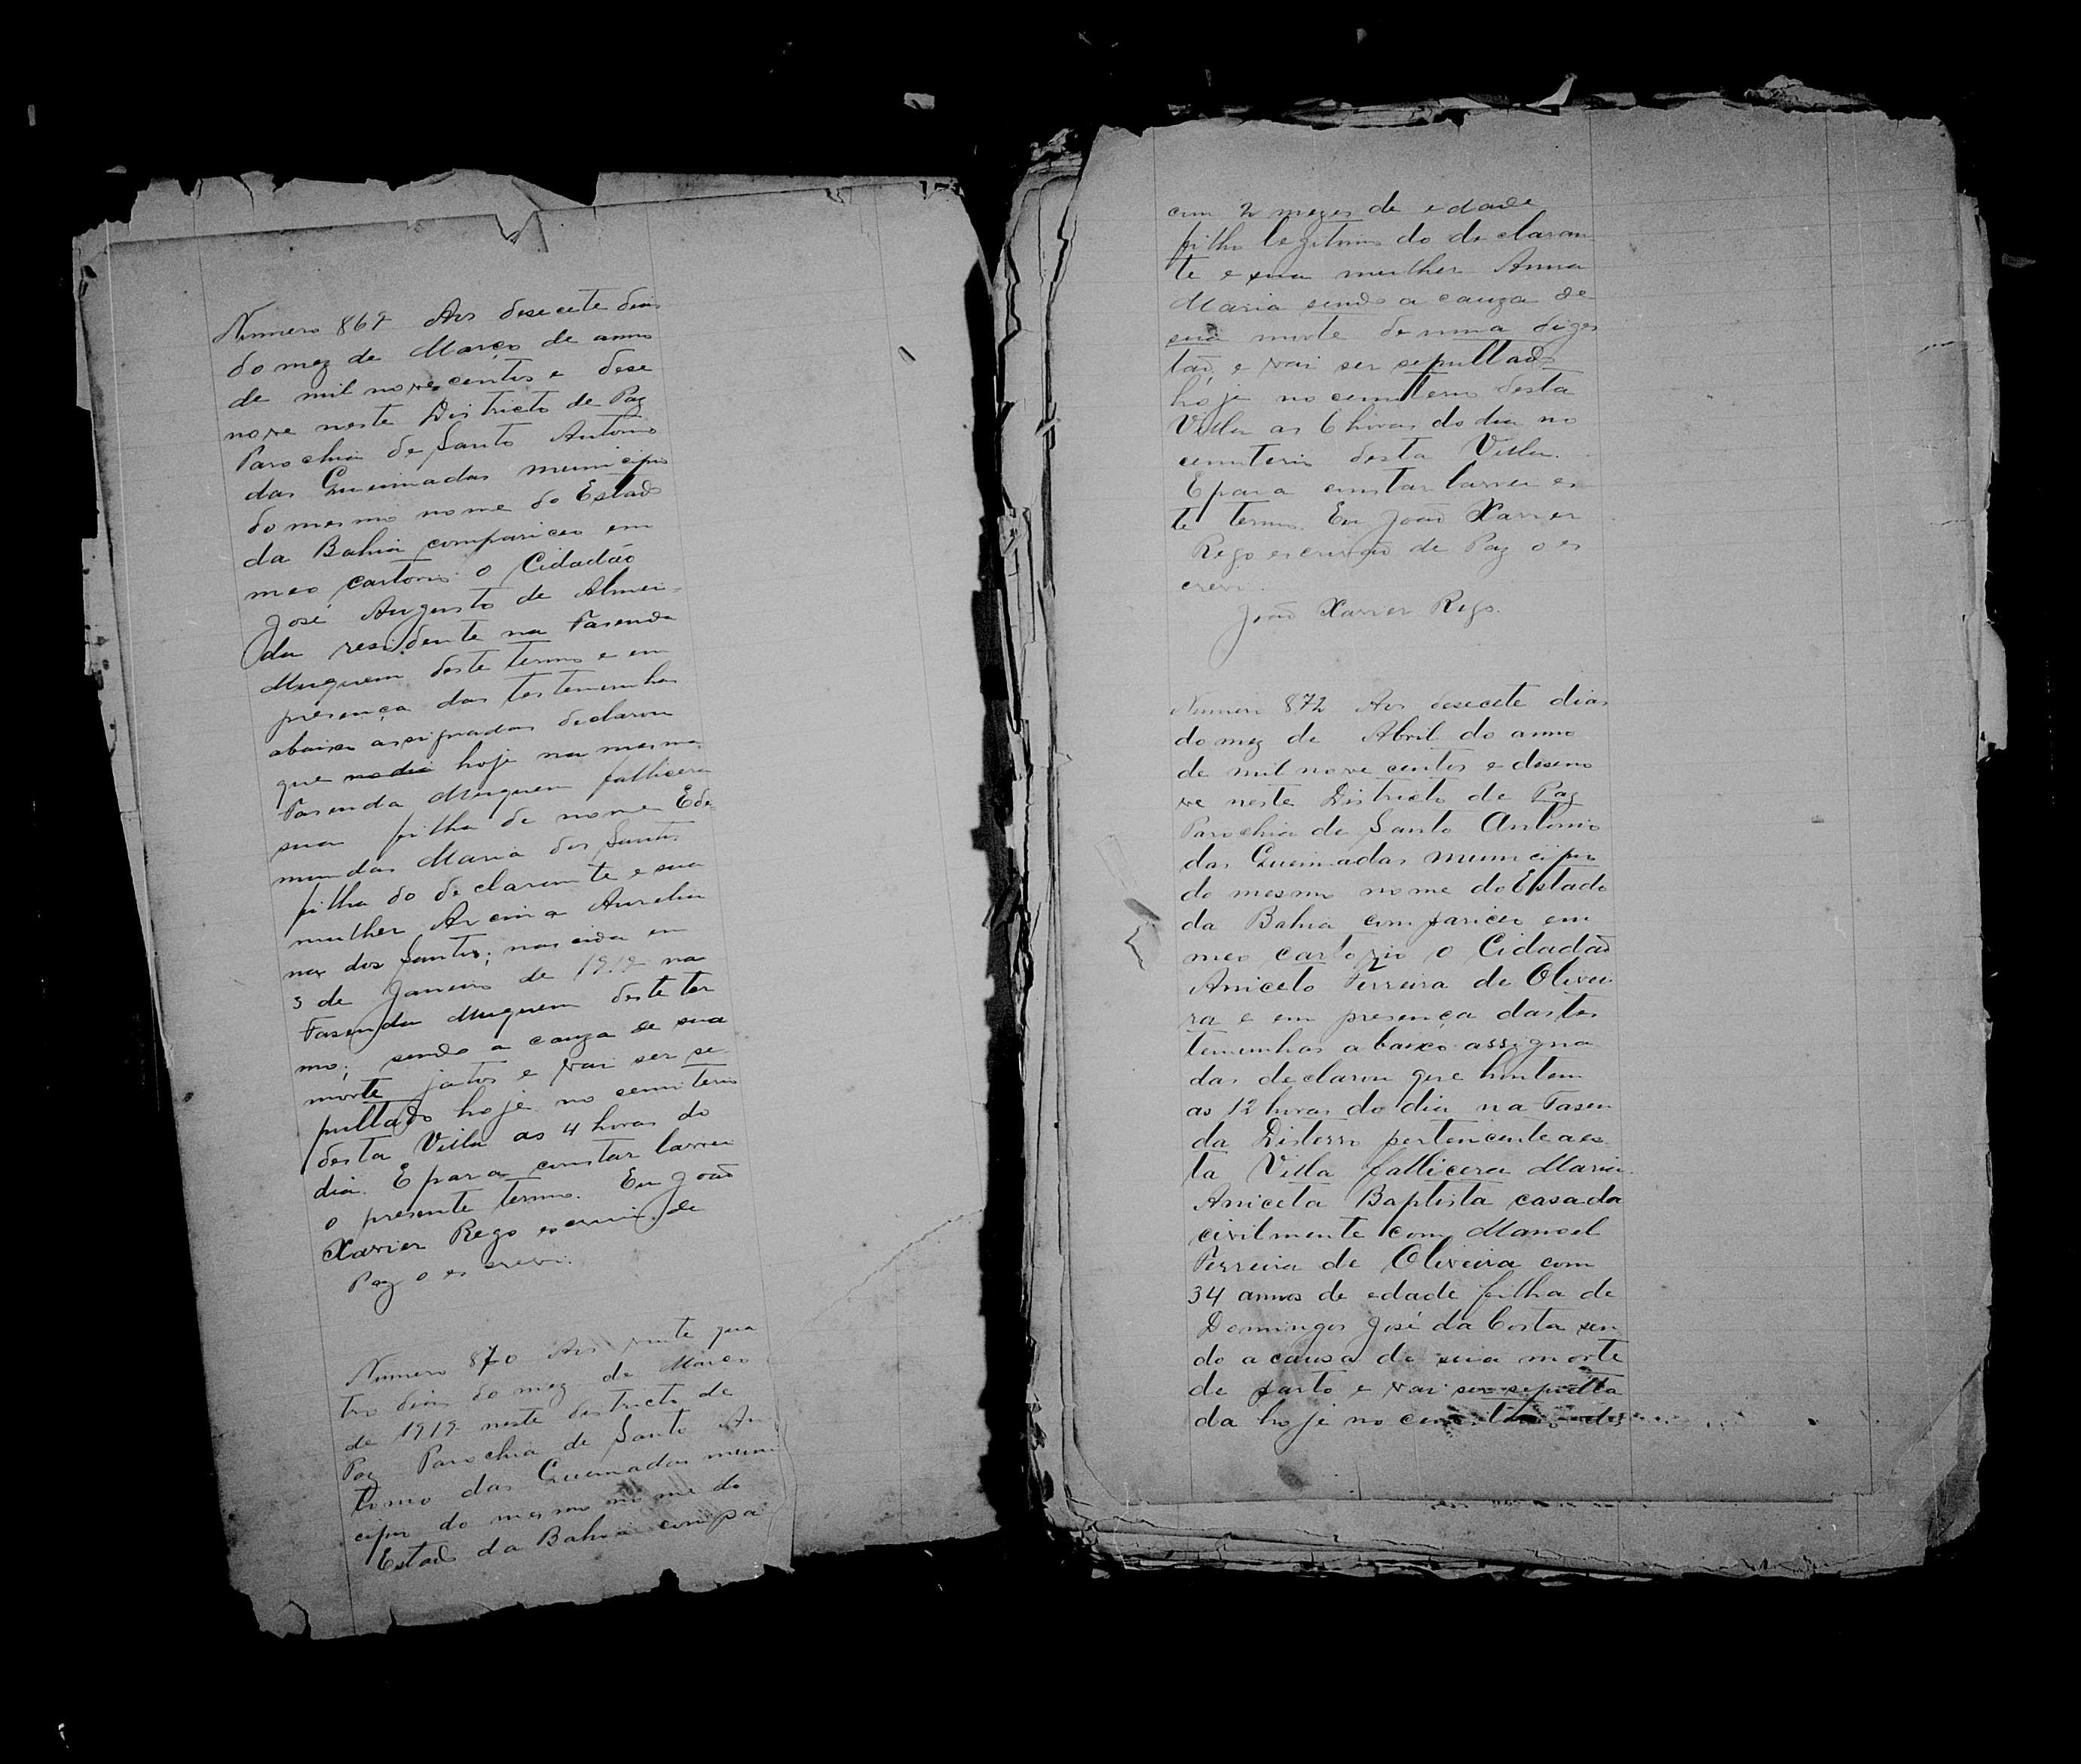 Numero 869 Aos desecete dias
do mez de Março de anno
de mil nove centos e dese
nove neste Districto de Paz
Parochia de Santo Antonio
das Queimadas municipio
do mesmo nome do Estado
da Bahia compariceo em
meo cartorio o Cidadão
José Augusto de Almei-
da residente na Fasenda
Muquem deste termo e em
presença das testemunhas
abaixo assignadas declarou
que no dia hoje na mesma
Fasenda Muquem fallicera
sua filha de nome Ede
mundas Maria dos Santos
filha do declarante e sua
mulher Aurelia
dos Santos; nascida em
3 de Janeiro de 1919 na
Fasenda Muquem deste ter
mo; sendo a cauza de sua
morte jatos e vai ser se-
pultado hoje no cemiterio
desta Villa as 4 horas do
dia. E para constar lavrei
o presente termo. Eu João
Xavier Rego escrivão de
Paz o escrevi.
Numero 870 Aos vinte qua
tro dias do mez de Março
de 1919 neste districto de
Paz Parochia de Santo An
tonio das Queimadas muni
cipio do mesmo nome do
Estado da Bahia compa
com 2 mezes de edade
filho legitimo do declaran
te e sua mulher Anna
Maria sendo a cauza de
sua morte de uma diges
tão, e vai ser sepultado
hoje no cemiterio desta
Villa as 6 horas do dia no
cemiterio desta Villa.
E para constar lavrei es
te termo. Eu João Xavier
Rego escrivão de Paz o es
crevi.
João Xavier Rego.
Numero 872 Aos desecete dias
do mez de Abril do anno
de mil nove centos e deseno
ve neste Districto de Paz
Parochia de Santo Antonio
das Queimadas municipio
do mesmo nome do Estado
da Bahia compariceo em
meo cartorio o Cidadão
Aniceto Ferreira de Olivei
ra e em presença das tes
temunhas abaixo assigna
das declarou que hontem
as 12 horas do dia na Fasen
da Disterro pertencente a es
ta Villa fallicera Maria
Aniceta Baptista casada
civilmente com Manoel
Ferreira de Oliveira com
34 annos de edade filha de
Domingos José da Costa sen
do a causa de sua morte
de parto e vai ser sepulta
da hoje no cemiterio des